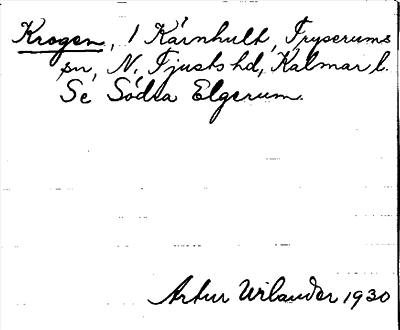 Krogen, 1 Kårnhult, Tryserums
sn, N. Tjusts hd, Kalmar l.
Se Södra Elgerum.
Artur Wilander 1930